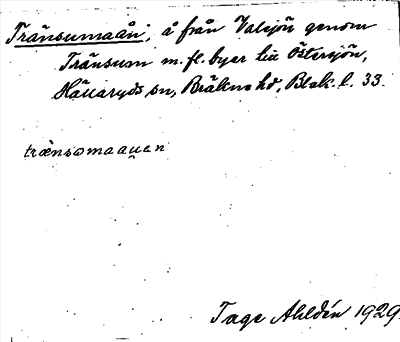 Tränsumaån; å från Valsjön genom
Tränsum m.fl. byar till Östersjön,
Hällaryds sn, Bräkne hd, Blek. l. 33.
trænsəmaau̯en
Tage Ahldén 1929.